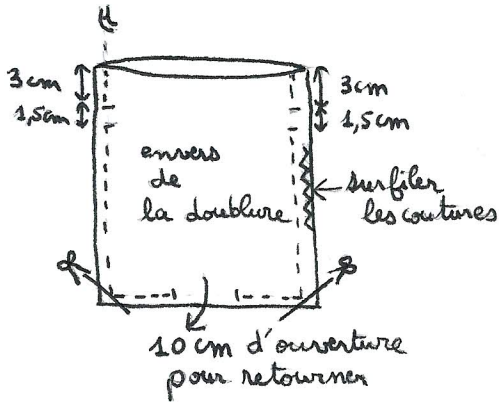 3cm
3cm
1,5cm
1,5cm
envers
de
la doublure
surfiler
les coutures
10 cm d'ouverture
pour retourner